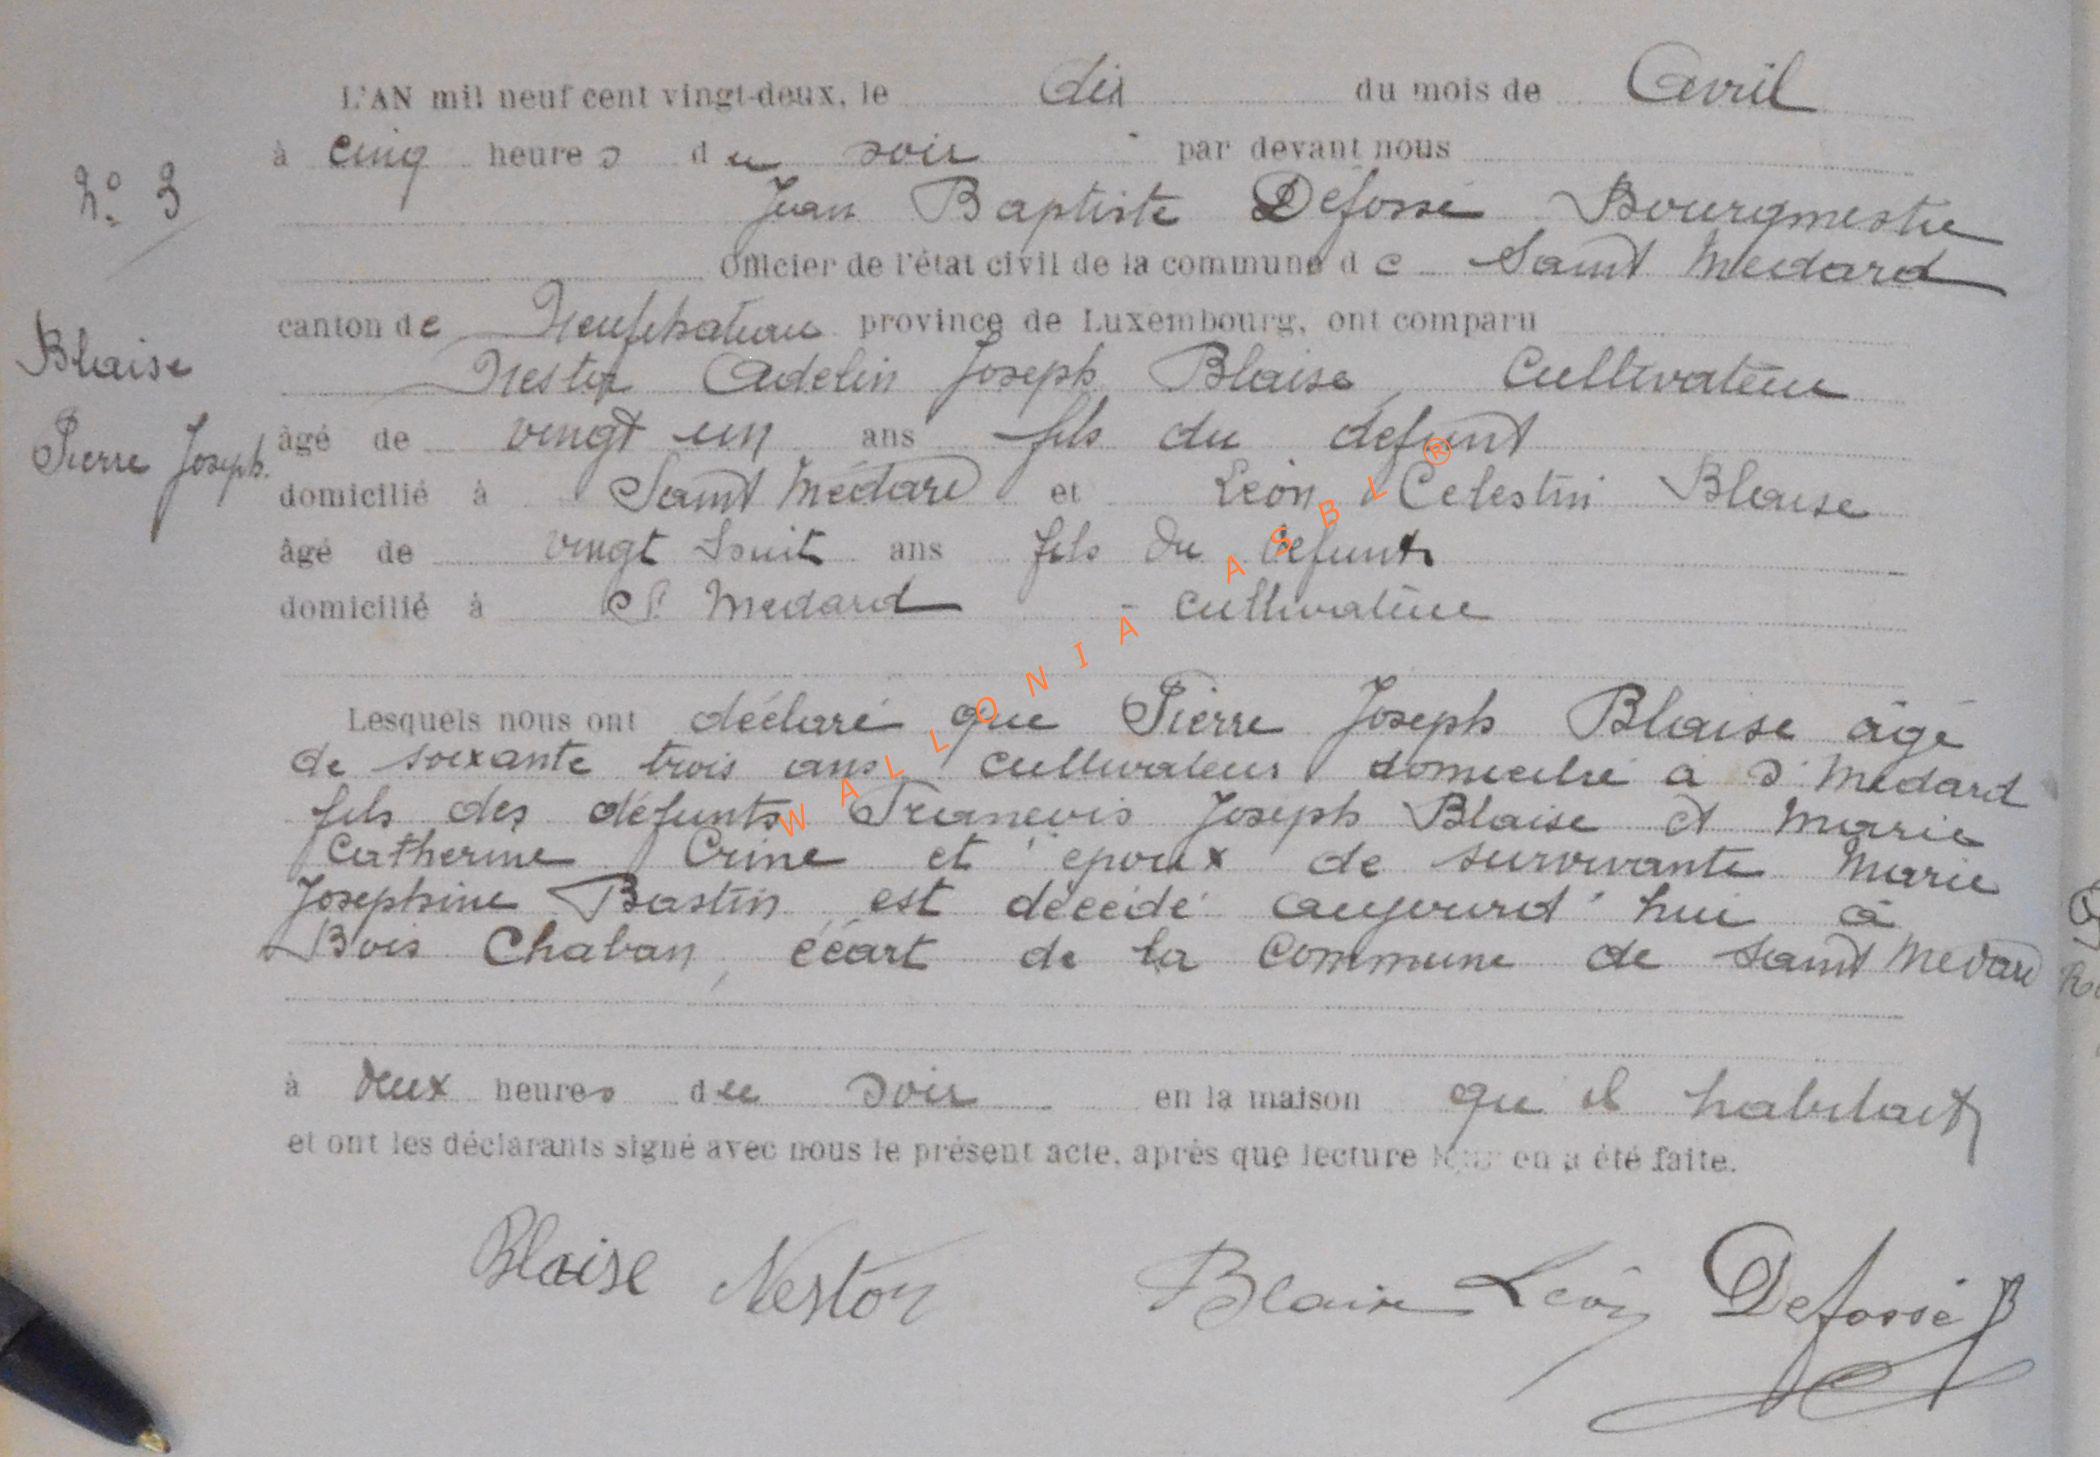 L'AN mil neuf cent vingt-deux, le dix du mois de Avril
à cinq heures du soir par devant nous
N° 3
Jean Baptiste Défossé Bourgmestre
officier de l'état civil de la commune de Saint Médard
canton de Neufchateau province de Luxembourg, ont comparu
Blaise
Nestor Adelin Joseph Blaise, Cultivateur
Pierre Joseph.
âgé de vingt un ans fils du défunt
domicilié à Saint Médard et Léon Celestin Blaise
âgé de vingt huit ans fils du défunt
domicilié à St Medard - cultivateur
Lesquels nous ont déclaré que Pierre Joseph Blaise âgé
de soixante trois ans, cultivateur domicilié à St Médard
fils des défunts François Joseph Blaise et Marie
Catherine Crine et époux de survivante Marie
Josephine Bastin est décédé aujourd'hui à
Bois Chaban, écart de la commune de Saint Médard
à deux heures du soir en la maison qu'il habitait
et ont les déclarants signé avec nous le présent acte, après que lecture leur en a été faite.
Blaise Nestor Blaise Léon Defossé JB
WALLONIA ASBL ®